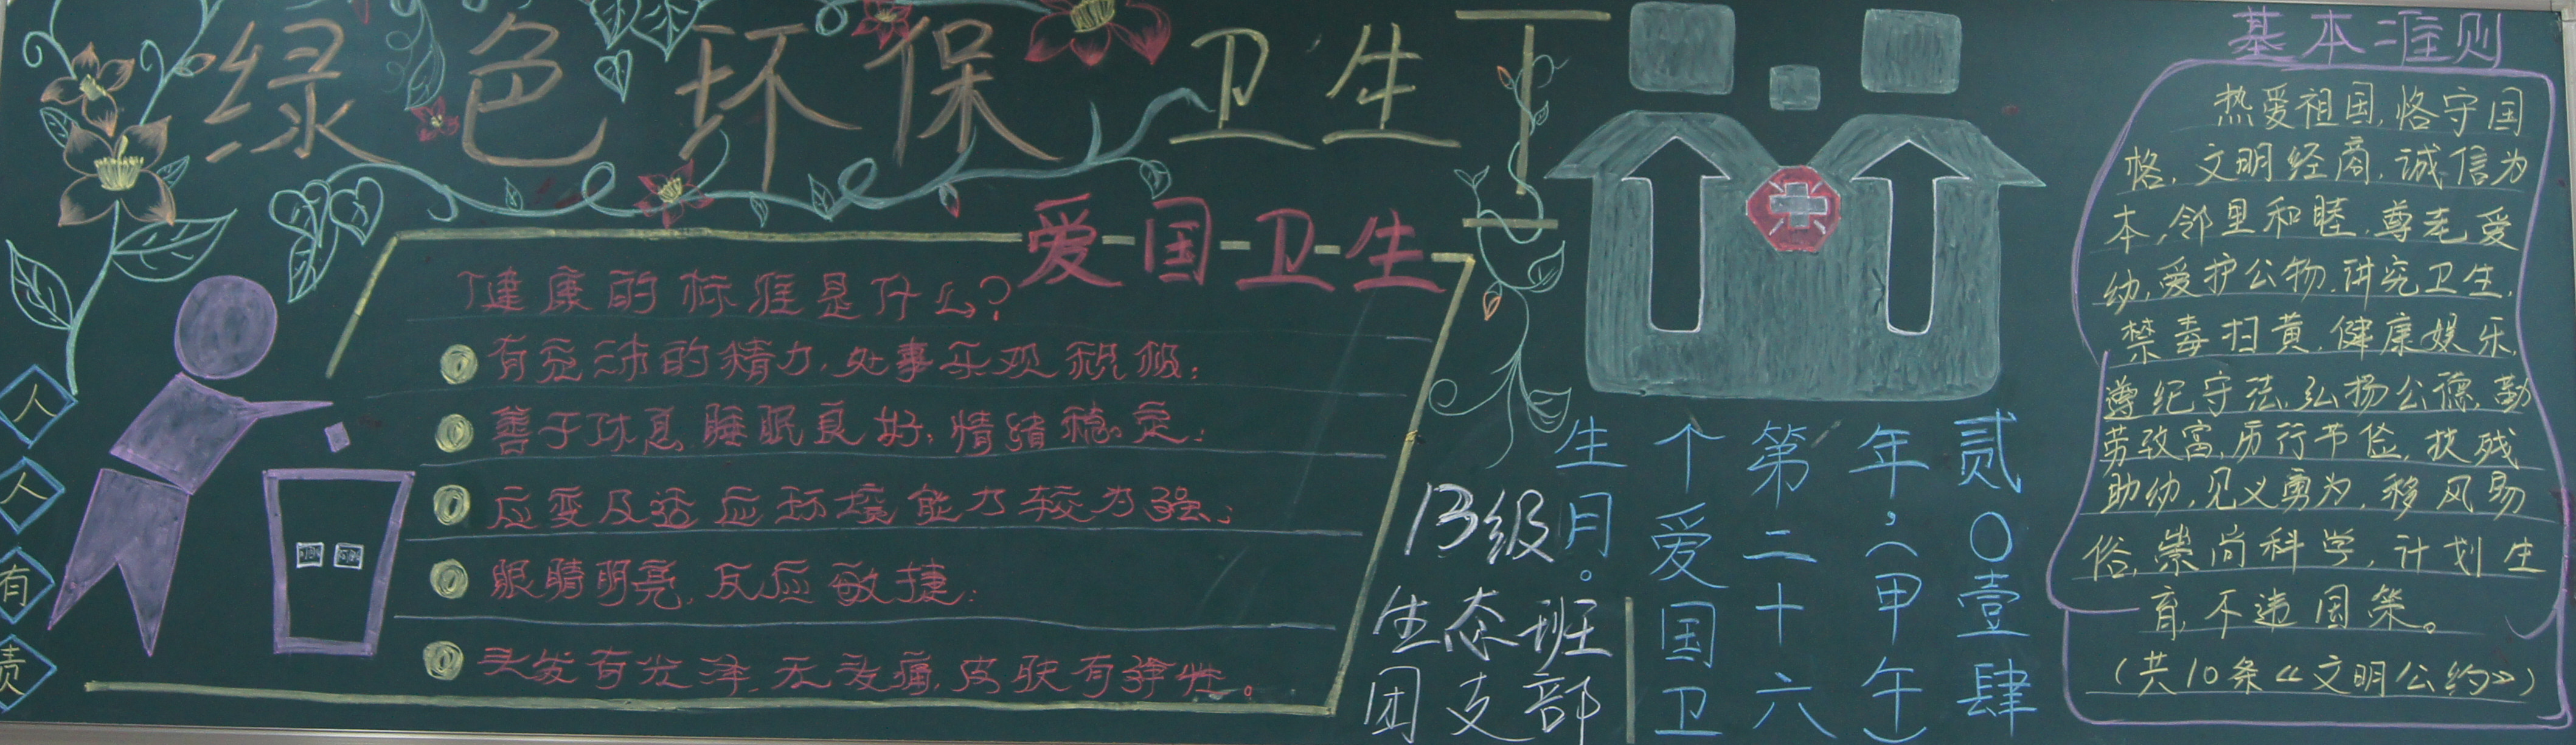 绿色环保卫生
人
人
有
责
爱国卫生
健康的标准是什么?
有充沛的精力,处事乐观积极;
善于休息,睡眠良好,情绪稳定;
应变及适应环境能力较为强;
眼睛明亮,反应敏捷;
头发有光泽,无头痛,皮肤有弹性。
贰〇壹肆
年,(甲午)
第二十六
个爱国卫
生月。
13级
生态班
团支部
基本准则
热爱祖国,恪守国
格,文明经商,诚信为
本,邻里和睦,尊老爱
幼,爱护公物,讲究卫生,
禁毒扫黄,健康娱乐,
遵纪守法,弘扬公德,勤
劳致富,厉行节俭,扶残
助幼,见义勇为,移风易
俗,崇尚科学,计划生
育,不违国策。
(共10条《文明公约》)